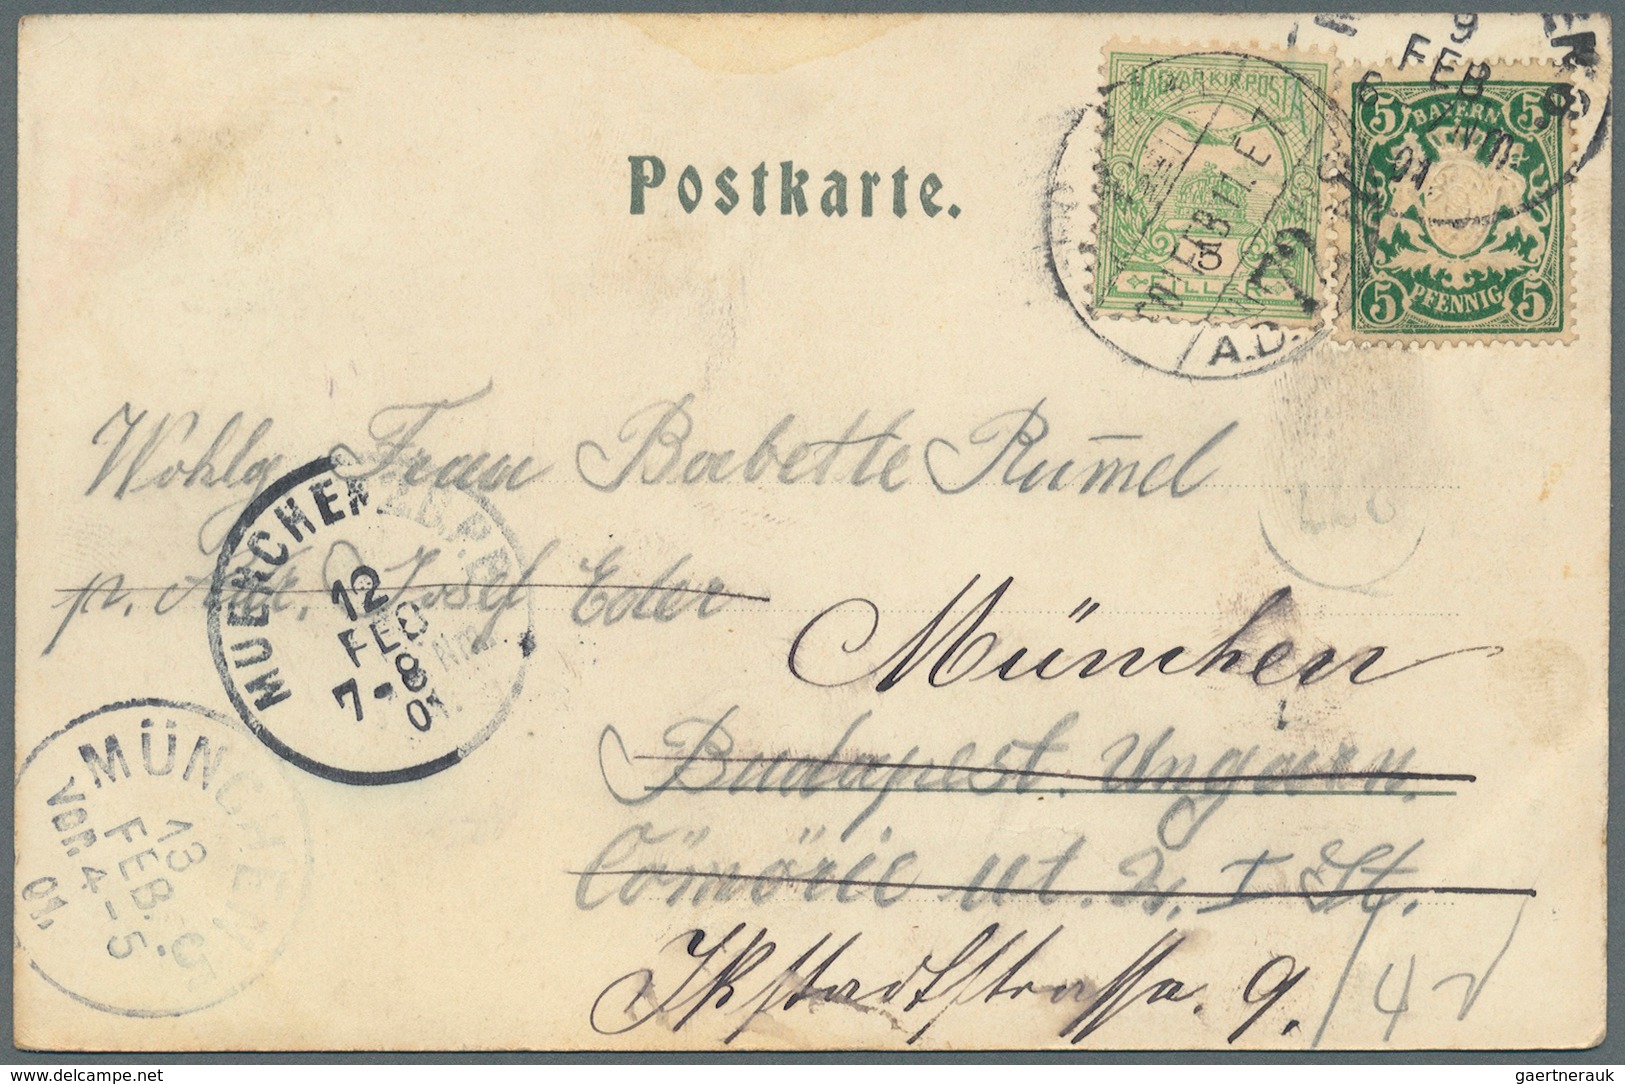 Postkarte.
MAGYAR KIR. POSTA
5
FILLER
A.D.
72
9
FEB
01
5 BAYERN 5
5 PFENNIG 5
Wohlg Frau Babette Rummel
p. Adr. Josef Eder
München
Budapest. Ungarn.
Cömörie ut. 2. I St.
9. /4
MUENCHEN
12
FEB
7-8
01.
MÜNCHEN
13
FEB.
VOR. 4-5
01.
delcampe.net
gaertnerauk